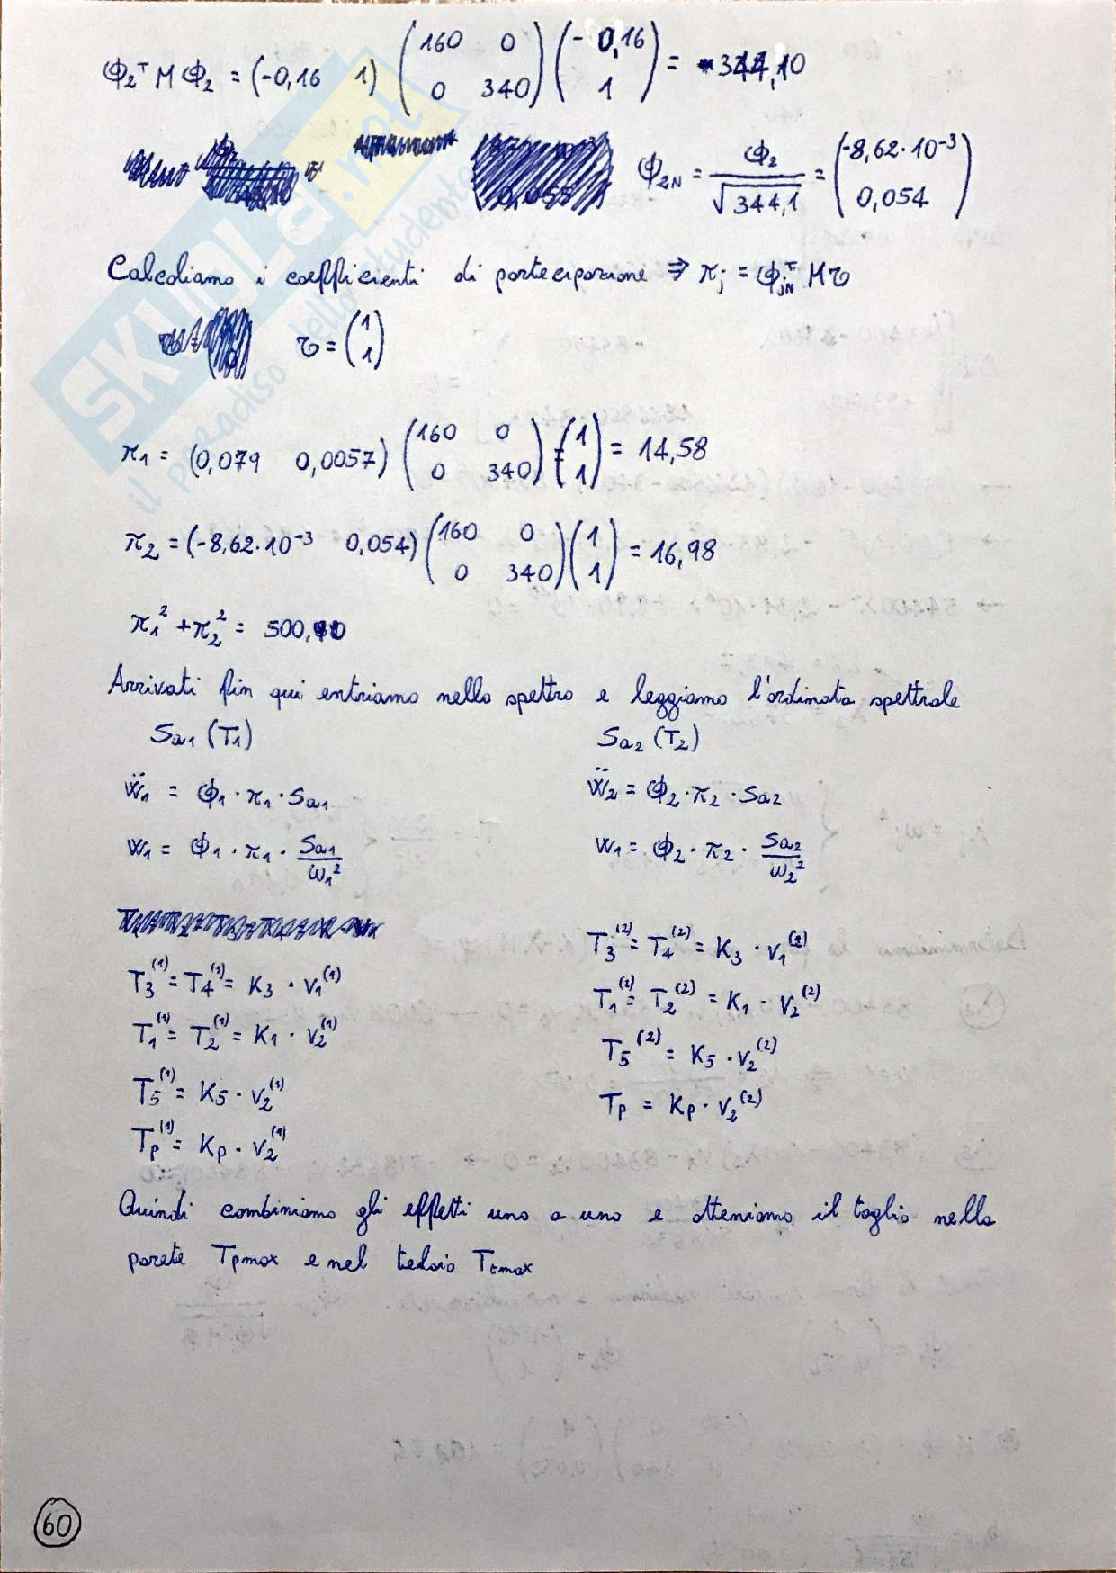 Φ₂ᵀ M Φ₂ = (-0,16 1) (160 0 0 340) (-0,16 1) = 344,10
Φ₂N = Φ₂ / √344,1 = (-8,62·10⁻³ 0,054)
Calcoliamo i coefficienti di partecipazione ⇒ π_j = Φ_jNᵀ M τ
τ = (1 1)
π₁ = (0,079 0,0057) (160 0 0 340) (1 1) = 14,58
π₂ = (-8,62·10⁻³ 0,054) (160 0 0 340) (1 1) = 16,98
π₁² + π₂² = 500,
Arrivati fin qui entriamo nello spettro e leggiamo l'ordinata spettrale
Sa₁ (T₁) Sa₂ (T₂)
ẅ₁ = Φ₁ · π₁ · Sa₁ ẅ₂ = Φ₂ · π₂ · Sa₂
w₁ = Φ₁ · π₁ · Sa₁/ω₁² w₁ = Φ₂ · π₂ · Sa₂/ω₂²
T₃⁽¹⁾ = T₄⁽¹⁾ = K₃ · v₁⁽¹⁾ T₃⁽²⁾ = T₄⁽²⁾ = K₃ · v₁⁽²⁾
T₁⁽¹⁾ = T₂⁽¹⁾ = K₁ · v₂⁽¹⁾ T₁⁽²⁾ = T₂⁽²⁾ = K₁ - v₂⁽²⁾
T₅⁽¹⁾ = K₅ · v₂⁽¹⁾ T₅⁽²⁾ = K₅ · v₂⁽²⁾
Tp⁽¹⁾ = Kp · v₂⁽¹⁾ Tp = Kp · v₂⁽²⁾
Quindi combiniamo gli effetti uno a uno e otteniamo il taglio nella
parete Tpmax e nel telaio Ttmax
60
SKUOLA.net
il paradiso dello studente